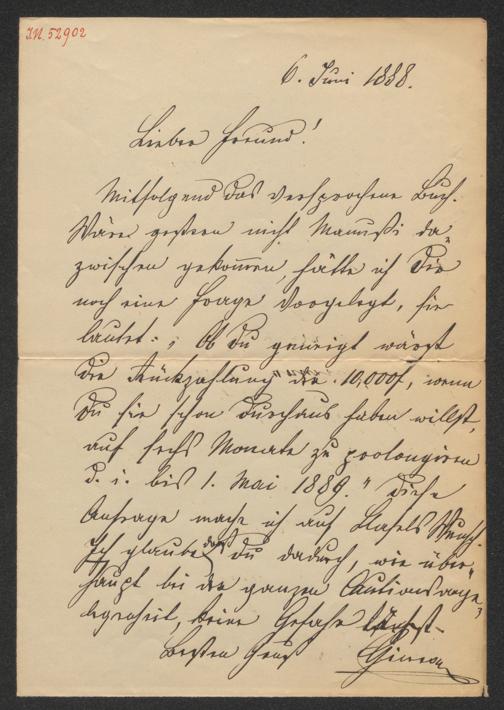 IN. 52902
6. Juni 1888.
Lieber Freund!
Mitfolgend das versprochene Buch.
Wäre gestern nicht Manussi da„
zwischen gekommen, hätte ich Dir
noch eine Frage vorgelegt, sie
lautet: „Ob Du geneigt wärest
die Rückzahlung der 10,000f, wenn
Du sie schon durchaus haben willst,
auf sechs Monate zu prolongiren
d. i. bis 1. Mai 1889." Diese
Anfrage mache ich auf Hasels Wunsch.
Ich glaube daß Du dadurch, wie über„
haupt bei der ganzen Cautionsange„
legenheit, keine Gefahr läufst.
Besten Gruß